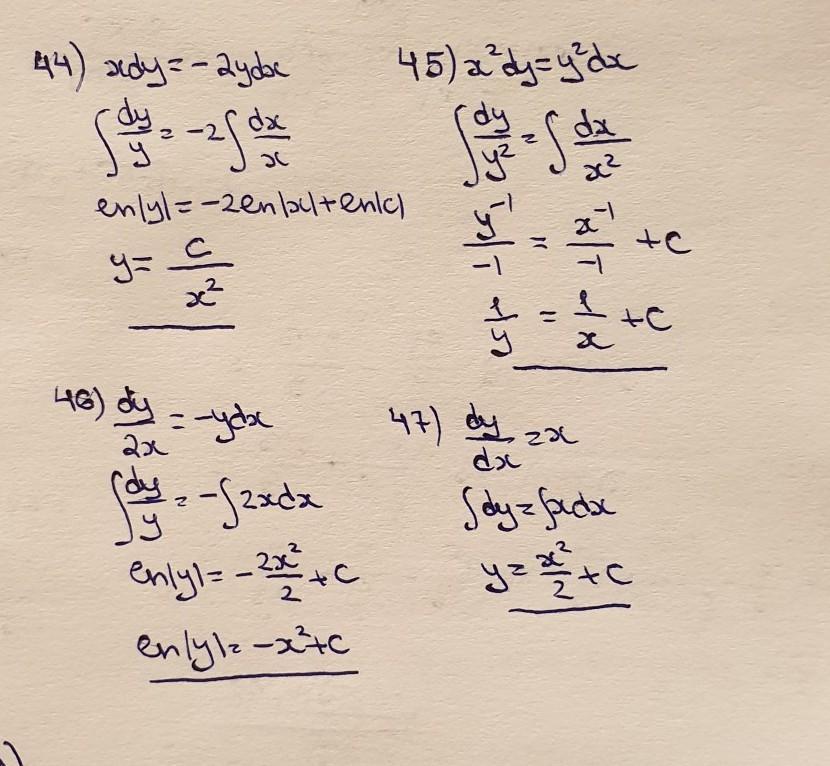 44) xdy = -2ydx
∫ dy/y = -2∫ dx/x
ln|y| = -2ln|x| + ln|c|
y = c/x²
45) x²dy = y²dx
∫ dy/y² = ∫ dx/x²
y⁻¹/-1 = x⁻¹/-1 + c
1/y = 1/x + c
46) dy/2x = -ydx
∫ dy/y = -∫2xdx
ln|y| = -2x²/2 + c
ln|y| = -x² + c
47) dy/dx = x
∫dy = ∫xdx
y = x²/2 + c